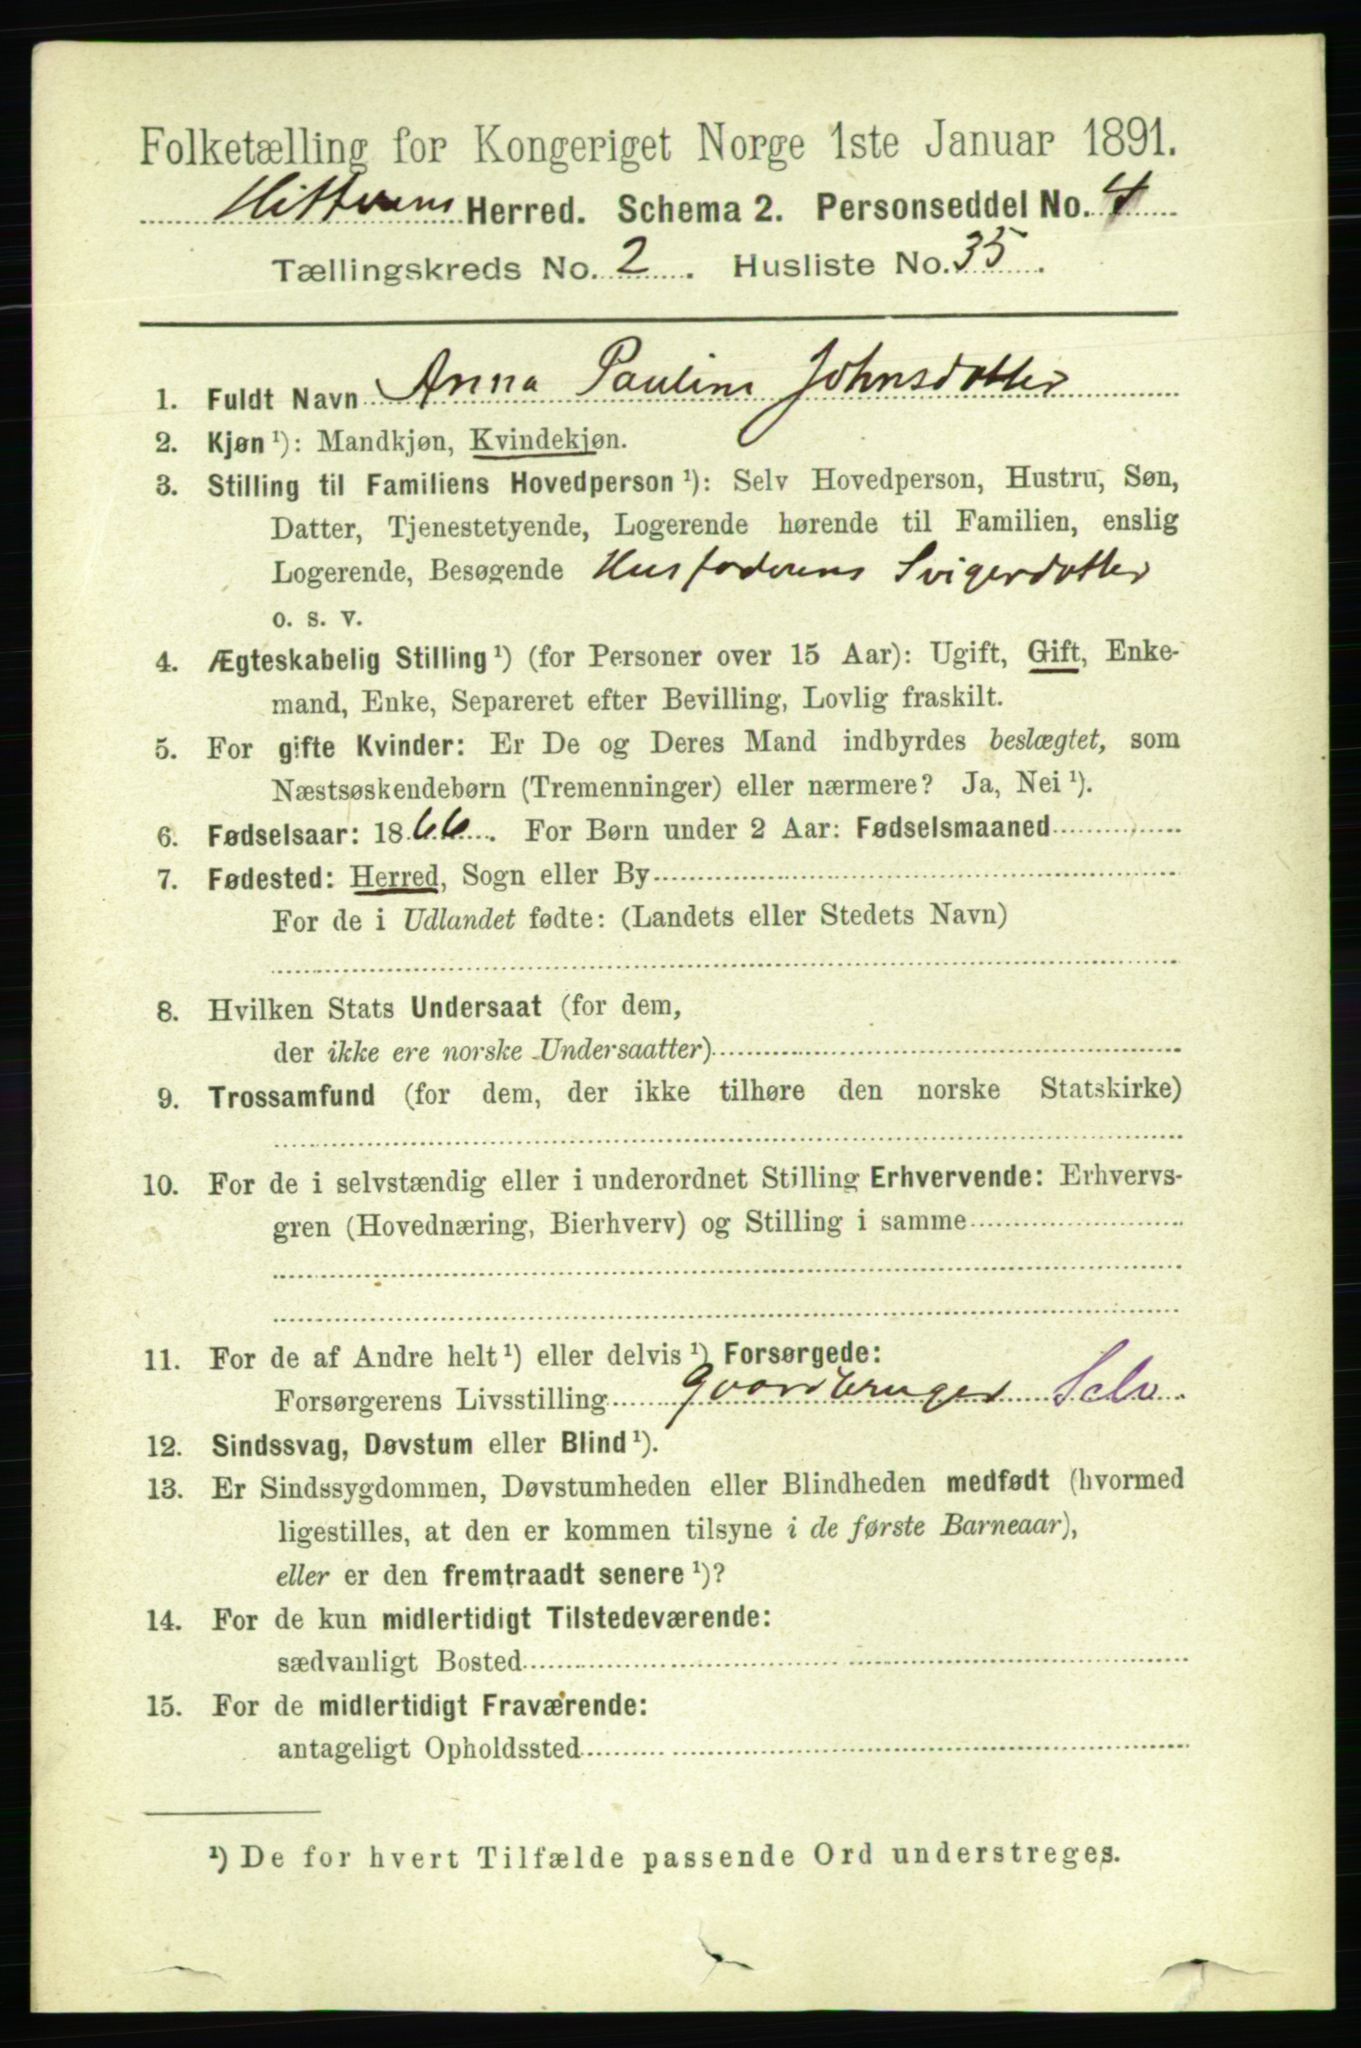 Folketælling for Kongeriget Norge 1ste Januar 1891.
Hitterens Herred. Schema 2. Personseddel No. 4
Tællingskreds No. 2. Husliste No. 35.
1. Fuldt Navn Anna Pauline Johnsdatter
2. Kjøn ¹): Mandkjøn, Kvindekjøn.
3. Stilling til Familiens Hovedperson ¹): Selv Hovedperson, Hustru, Søn,
Datter, Tjenestetyende, Logerende hørende til Familien, enslig
Logerende, Besøgende Husfaderens Svigerdatter
o. s. v.
4. Ægteskabelig Stilling ¹) (for Personer over 15 Aar): Ugift, Gift, Enke-
mand, Enke, Separeret efter Bevilling, Lovlig fraskilt.
5. For gifte Kvinder: Er De og Deres Mand indbyrdes beslægtet, som
Næstsøskendebørn (Tremenninger) eller nærmere? Ja, Nei ¹).
6. Fødselsaar: 1866. For Børn under 2 Aar: Fødselsmaaned
7. Fødested: Herred, Sogn eller By
For de i Udlandet fødte: (Landets eller Stedets Navn)
8. Hvilken Stats Undersaat (for dem,
der ikke ere norske Undersaatter)
9. Trossamfund (for dem, der ikke tilhøre den norske Statskirke)
10. For de i selvstændig eller i underordnet Stilling Erhvervende: Erhvervs-
gren (Hovednæring, Bierhverv) og Stilling i samme
11. For de af Andre helt ¹) eller delvis ¹) Forsørgede:
Forsørgerens Livsstilling Gaardbruger Selv.
12. Sindssvag, Døvstum eller Blind ¹).
13. Er Sindssygdommen, Døvstumheden eller Blindheden medfødt (hvormed
ligestilles, at den er kommen tilsyne i de første Barneaar),
eller er den fremtraadt senere ¹)?
14. For de kun midlertidigt Tilstedeværende:
sædvanligt Bosted
15. For de midlertidigt Fraværende:
antageligt Opholdssted
¹) De for hvert Tilfælde passende Ord understreges.